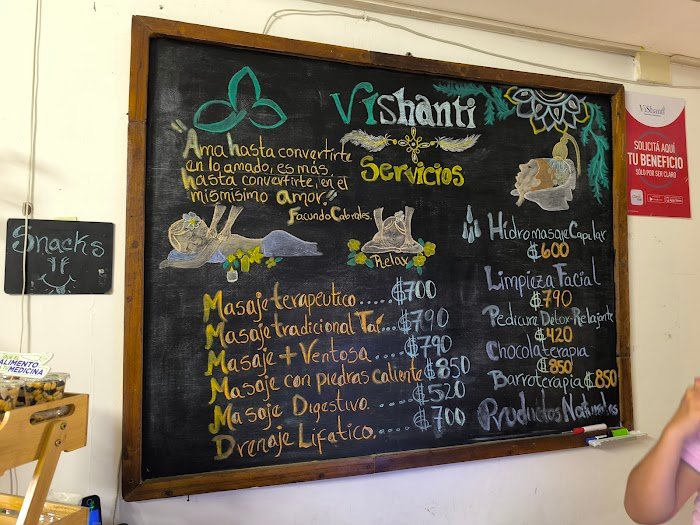 Vishanti
Servicios
"Ama hasta convertirte
en lo amado, es más,
hasta convertirte, en el
mismísimo amor."
Facundo Cabrales.
Relax
Masaje terapeutico..... $700
Masaje tradicional Tai... $790
Masaje + Ventosa.... $790
Masaje con piedras caliente $850
Masaje Digestivo..... $520
Drenaje Lifatico...... $700
Hidromasaje Capilar
$600
Limpieza Facial
$790
Pedicure Detox-Relajante
$420
Chocolaterapia
$850
Barroterapia $850
Productos Naturales
Snacks
ALIMENTO
MEDICINA
ViShanti
SOLICITÁ AQUÍ
TU BENEFICIO
SÓLO POR SER CLARO